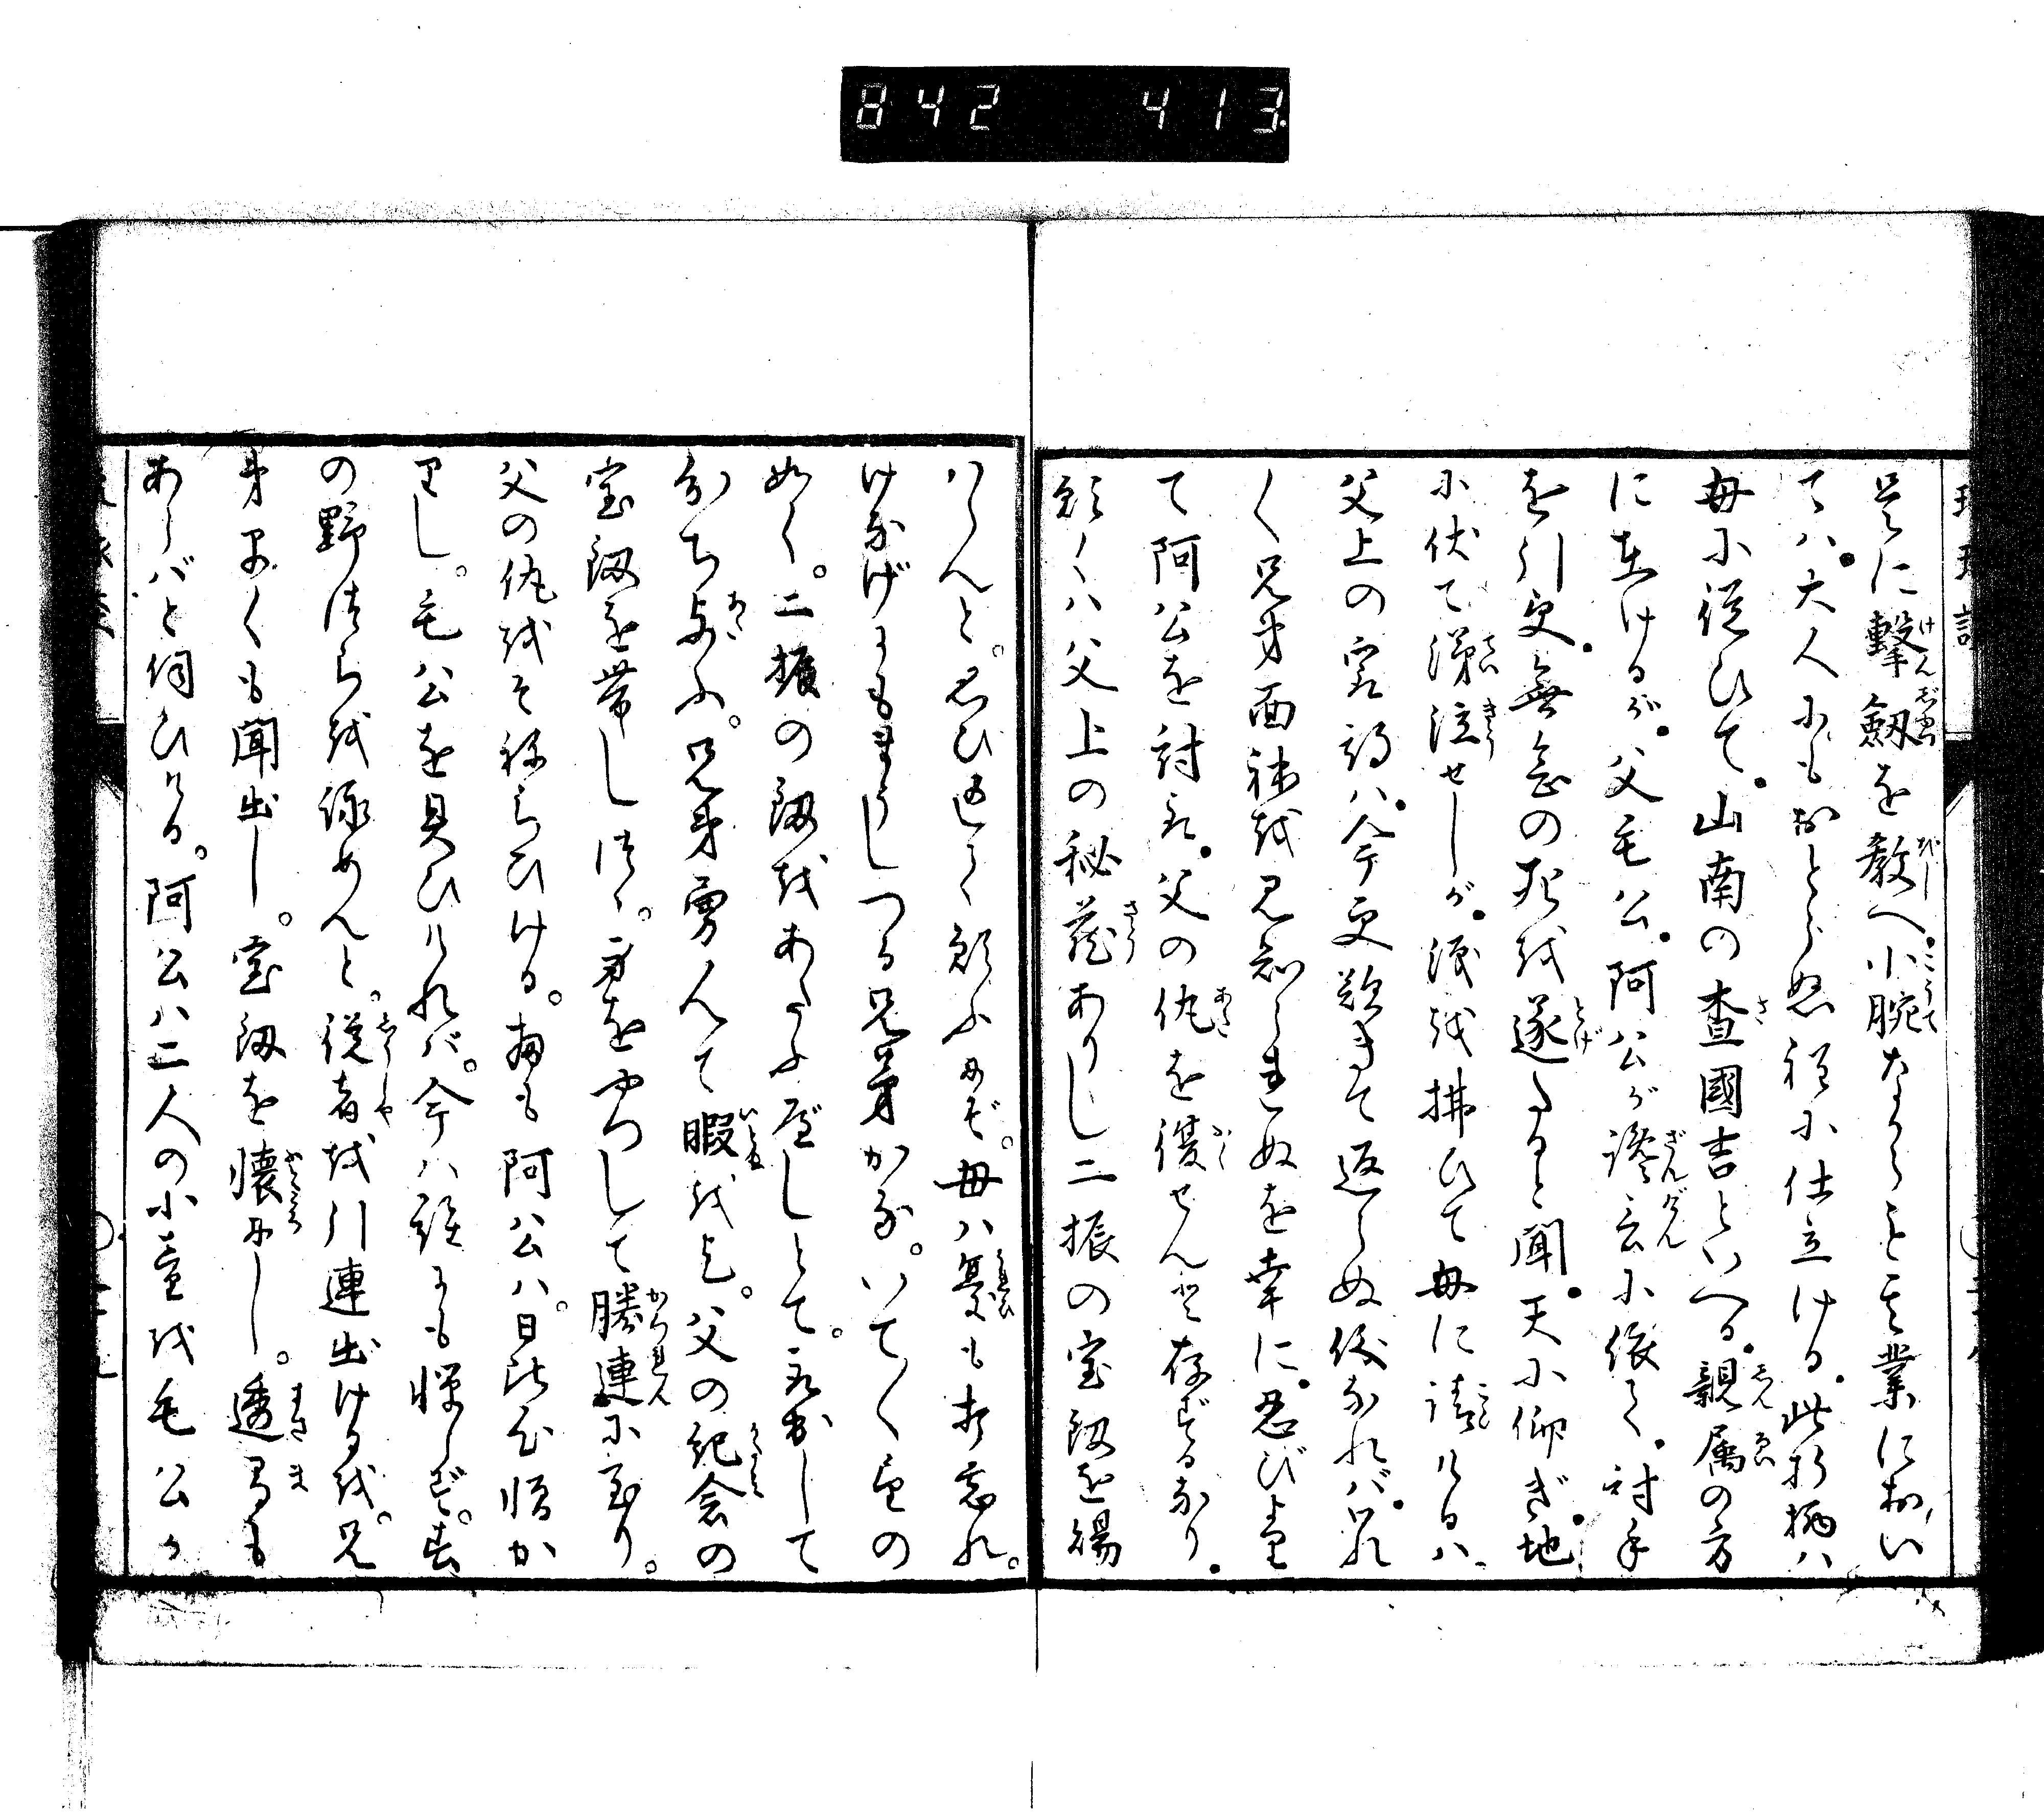 842 413
是に擊劔を教へ。小腕ながらも其業におい
てハ。大人にもおとらぬ程に仕立ける。此折柄ハ
母に従ひて。山南の査國吉といへる。親属の方
に在けるが。父毛公。阿公が讒言に依て。討手
を引受。無念の死を遂たると聞。天に仰ぎ。地
に伏て涕泣せしが。涙を拂ひて母に請ける日ハ
父上の寃罪ハ。今更歎きて返らぬ後なれバ。只
く兄弟面体を見知られぬを幸に。忍びよ
て阿公を討取。父の仇を復せんと存ずるなり。
願くハ父上の秘蔵ありし二振の宝釼を賜
ハらんと。思ひ込て願ふにぞ。母ハ憂も打忘れ。
けなげにもまうしつる兄弟かな。いで〳〵望の
如く。二振の釼をあたふ可しとて。取出して
分ち与ふ。兄弟勇んで暇を乞。父の紀念の
宝釼を帯しつゝ。身をやつして勝連に至り。
父の仇をぞねらひける。扨も阿公ハ。日比
せし。毛公を失ひけれバ。今ハ誰にも憚らず。春
の野きらを詠めんと。従者を引連出けるを。兄
弟早くも聞出し。宝釼を懐にし。透間も
あらバと伺ひける。阿公ハ二人の小童を毛公が